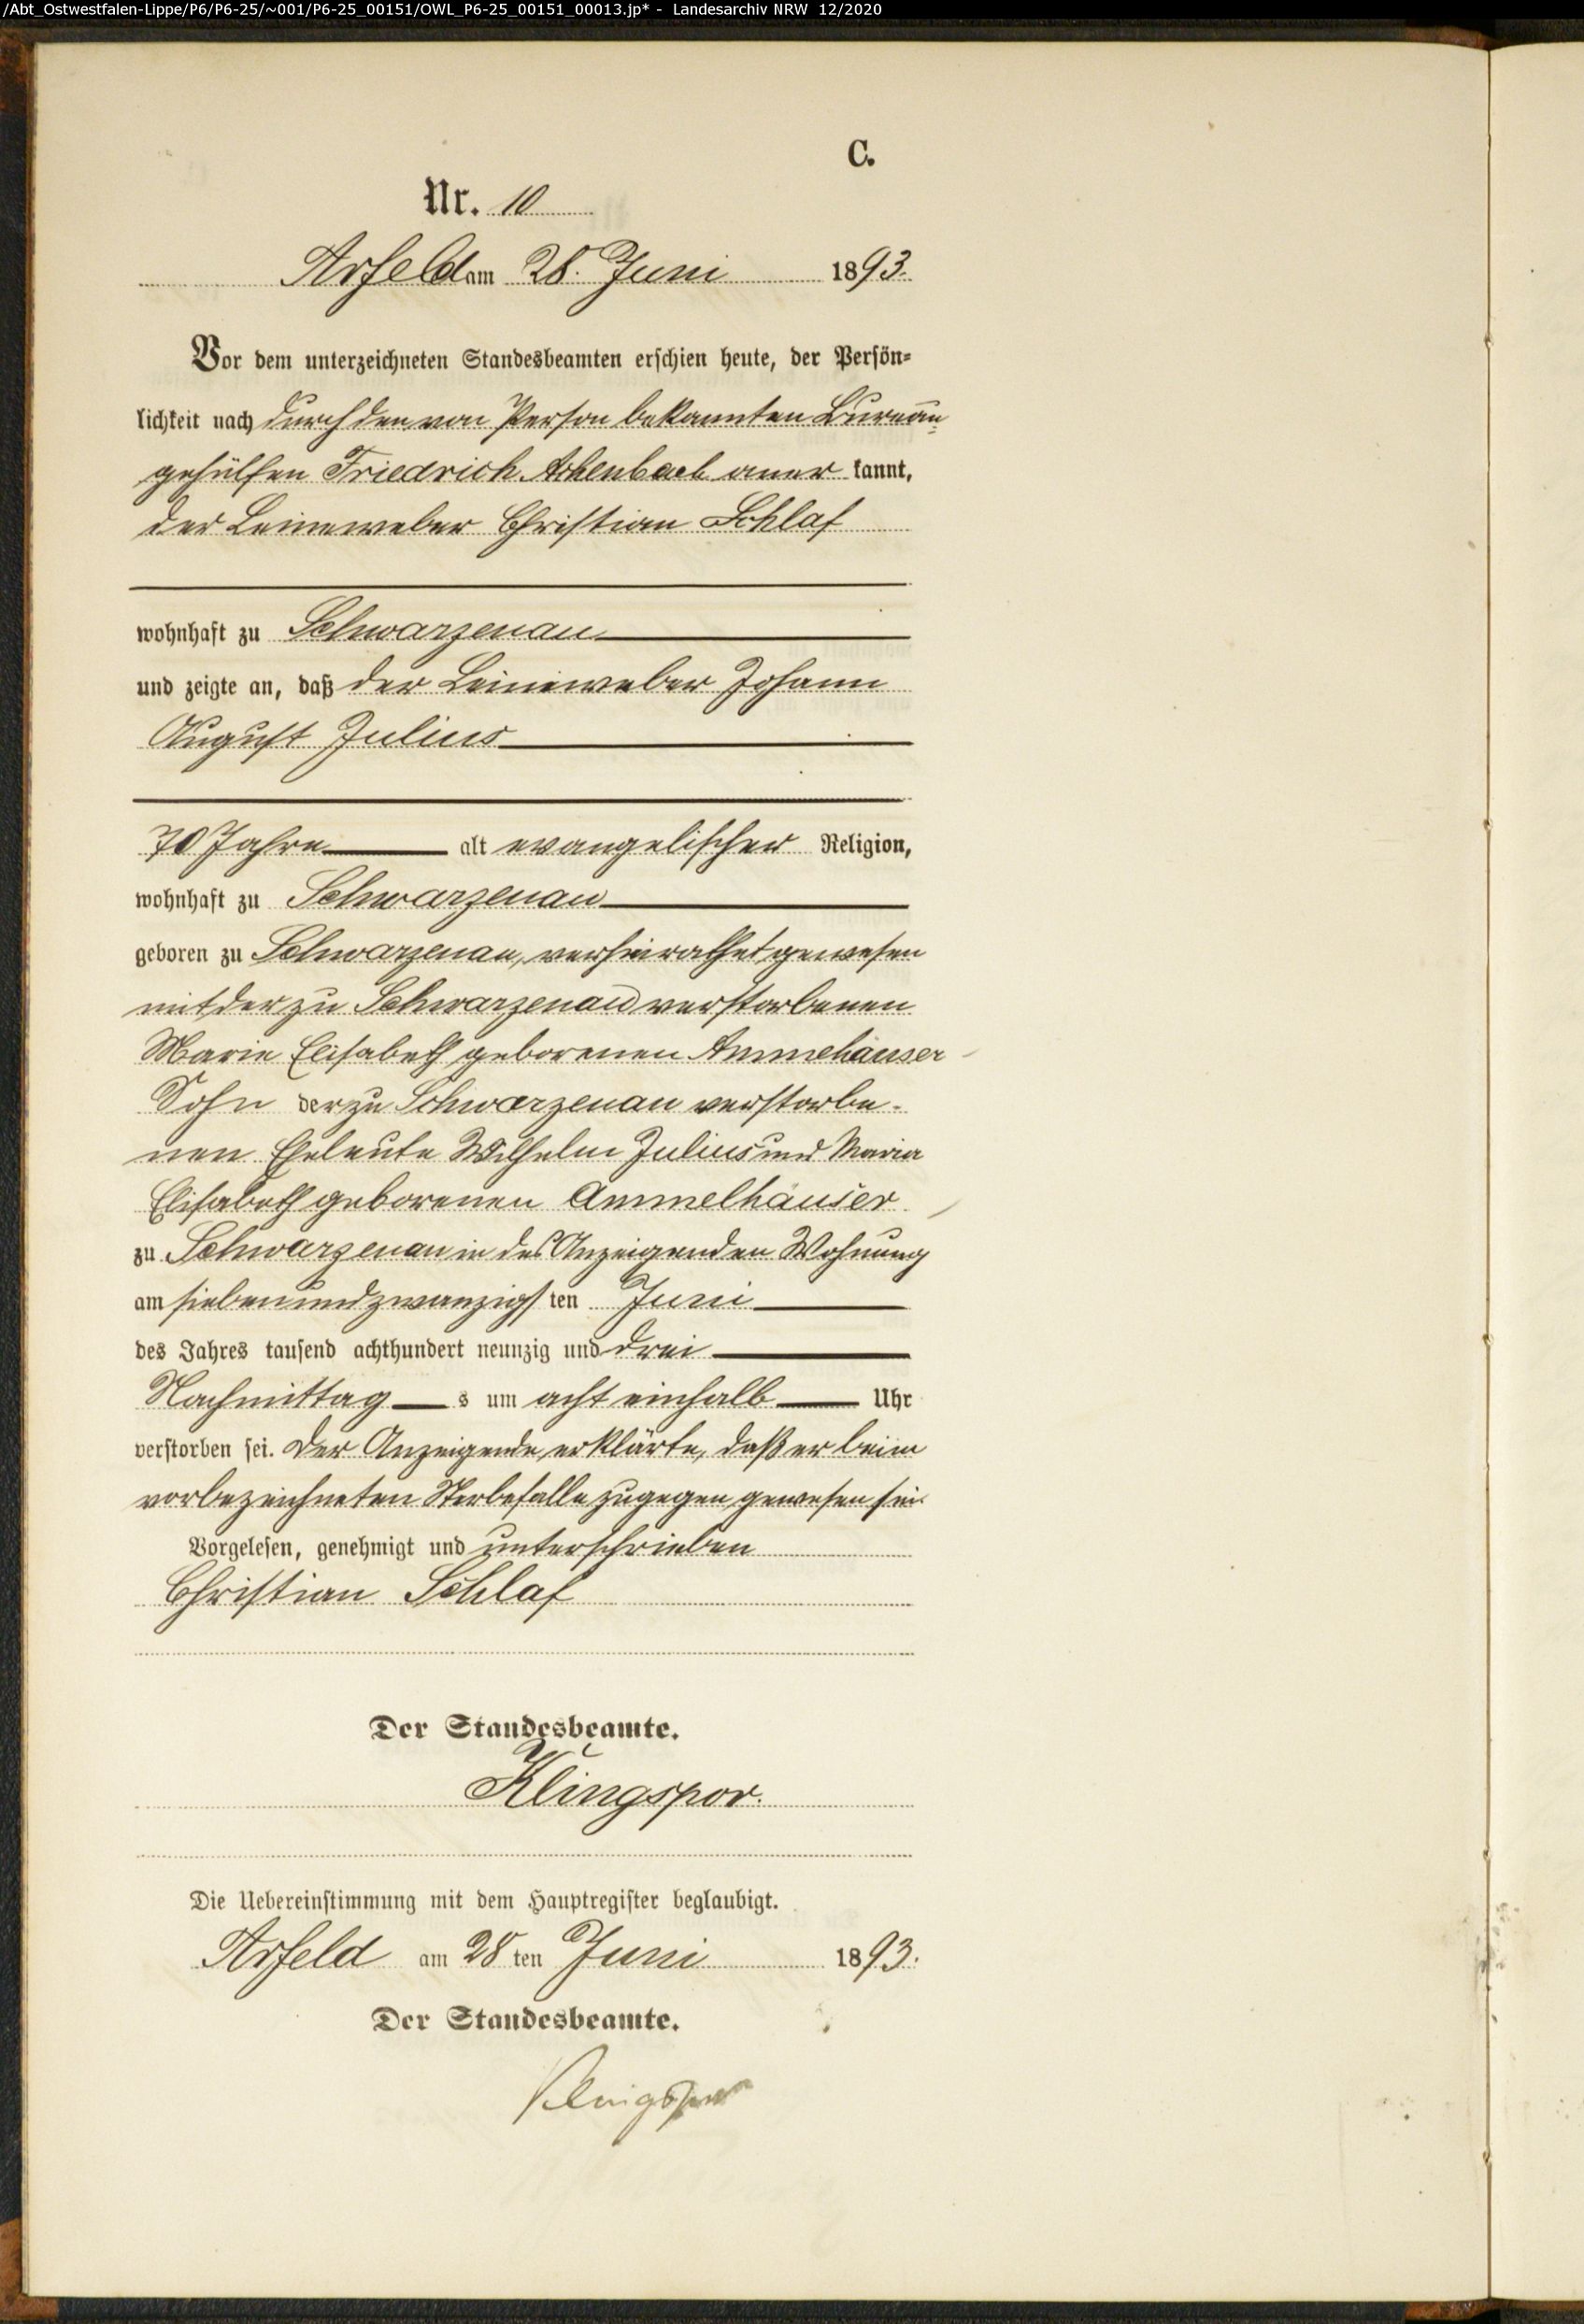 /Abt_Ostwestfalen-Lippe/P6/P6-25/~001/P6-25_00151/OWL_P6-25_00151_00013.jp* - Landesarchiv NRW 12/2020
C.
Nr. 10
Arfeld am 28. Juni 1893.
Vor dem unterzeichneten Standesbeamten erschien heute, der Persön-
lichkeit nach durch den von Person bekannten Bureau
gehülfen Friedrich Achenbach aner kannt,
der Leineweber Christian Schlaf
wohnhaft zu Schwarzenau
und zeigte an, daß der Leineweber Johann
August Julius
70 Jahre alt evangelischer Religion,
wohnhaft zu Schwarzenau
geboren zu Schwarzenau, verheirathet gewesen
mit der zu Schwarzenau verstorbenen
Marie Elisabeth geborenen Ammehäuser
Sohn der zu Schwarzenau verstorbe-
nen Eheleute Wilhelm Julius und Maria
Elisabeth geborenen Ammelhäuser
zu Schwarzenau in des Anzeigenden Wohnung
am siebenundzwanzigs ten Juni
des Jahres tausend achthundert neunzig und drei
Nachmittag s um acht einhalb Uhr
verstorben sei. Der Anzeigende erklärte, daß er beim
vorbezeichneten Sterbefalle zugegen gewesen sei.
Vorgelesen, genehmigt und unterschrieben
Christian Schlaf
Der Standesbeamte.
Klingspor.
Die Uebereinstimmung mit dem Hauptregister beglaubigt.
Arfeld am 28 ten Juni 1893.
Der Standesbeamte.
Klingspor